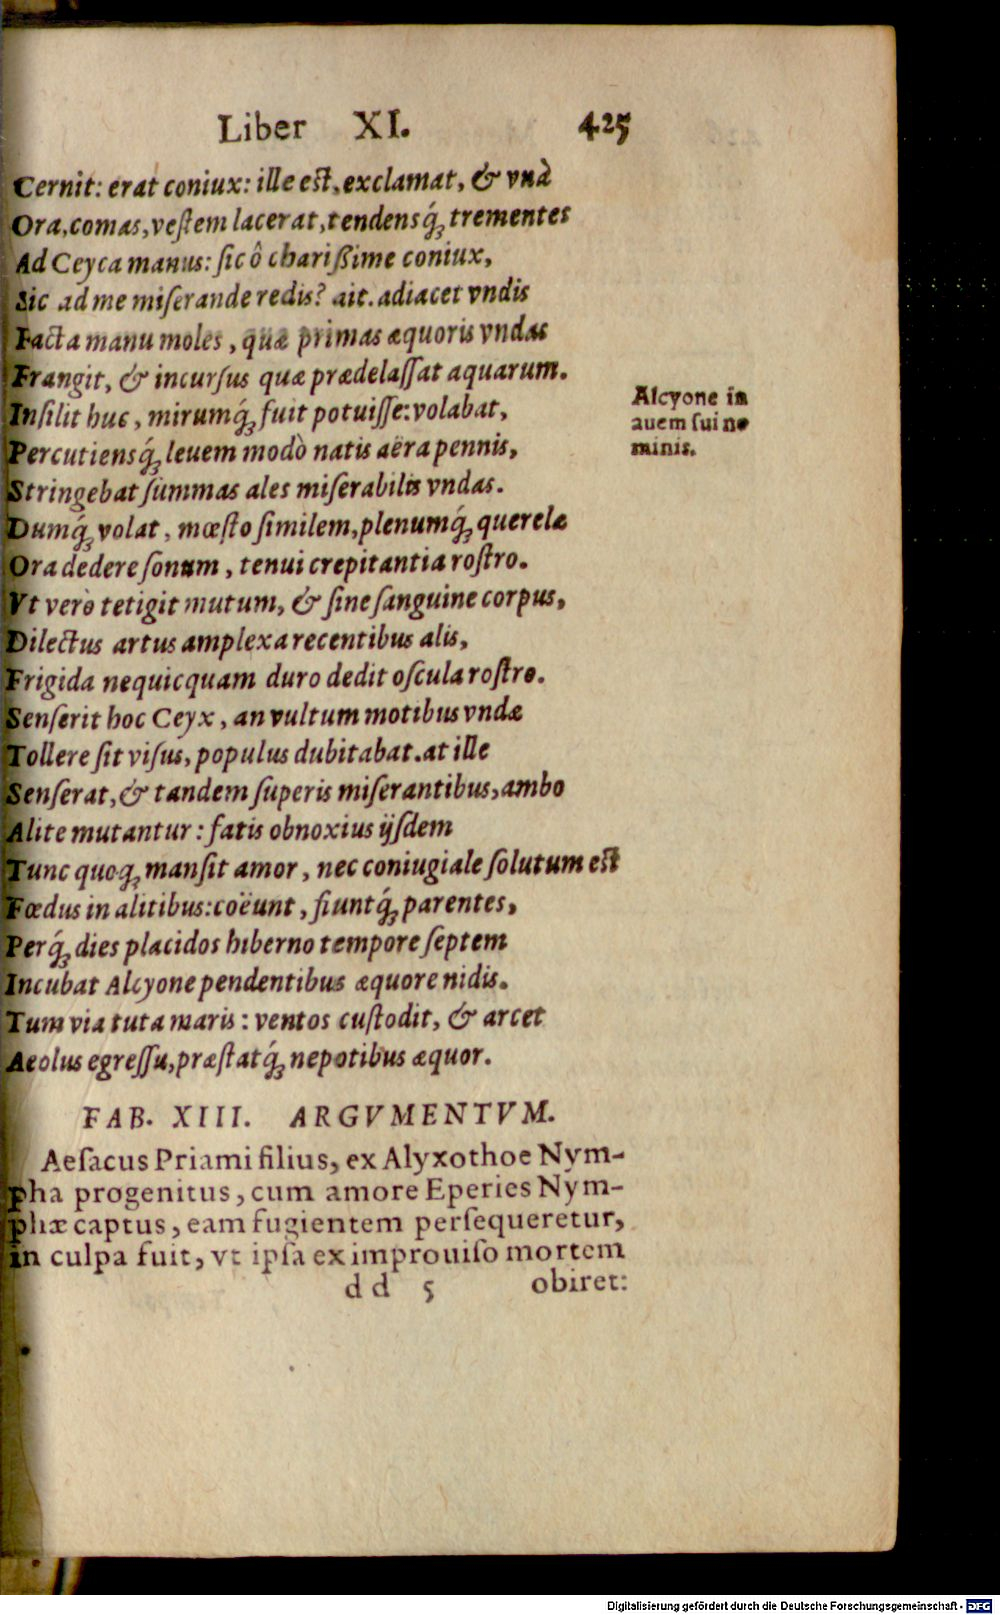 Liber XI. 425
Cernit: erat coniux: ille est, exclamat, & vnà
Ora, comas, vestem lacerat, tendensq́; trementes
Ad Ceyca manus: sic ô charissime coniux,
Sic ad me miserande redis? ait. adiacet vndis
Facta manu moles, quæ primas æquoris vndas
Frangit, & incursus quæ prædelassat aquarum.
Insilit huc, mirumq́; fuit potuisse: volabat,
Percutiensq́; leuem modò natis aëra pennis,
Stringebat summas ales miserabilis vndas.
Dumq́; volat, mœsto similem, plenumq́; querelæ
Ora dedere sonum, tenui crepitantia rostro.
Vt verò tetigit mutum, & sine sanguine corpus,
Dilectus artus amplexa recentibus alis,
Frigida nequicquam duro dedit oscula rostro.
Senserit hoc Ceyx, an vultum motibus vndæ
Tollere sit visus, populus dubitabat. at ille
Senserat, & tandem superis miserantibus, ambo
Alite mutantur: fatis obnoxius ijsdem
Tunc quoq; mansit amor, nec coniugiale solutum est
Fœdus in alitibus: coëunt, fiuntq́; parentes,
Perq́; dies placidos hiberno tempore septem
Incubat Alcyone pendentibus æquore nidis.
Tum via tuta maris: ventos custodit, & arcet
Aeolus egressu, præstatq́; nepotibus æquor.
Alcyone in
auem sui no
minis.
FAB. XIII. ARGVMENTVM.
Aesacus Priami filius, ex Alyxothoe Nym-
pha progenitus, cum amore Eperies Nym-
phæ captus, eam fugientem persequeretur,
in culpa fuit, vt ipsa ex improuiso mortem
dd 5 obiret:
Digitalisierung gefördert durch die Deutsche Forschungsgemeinschaft - DFG